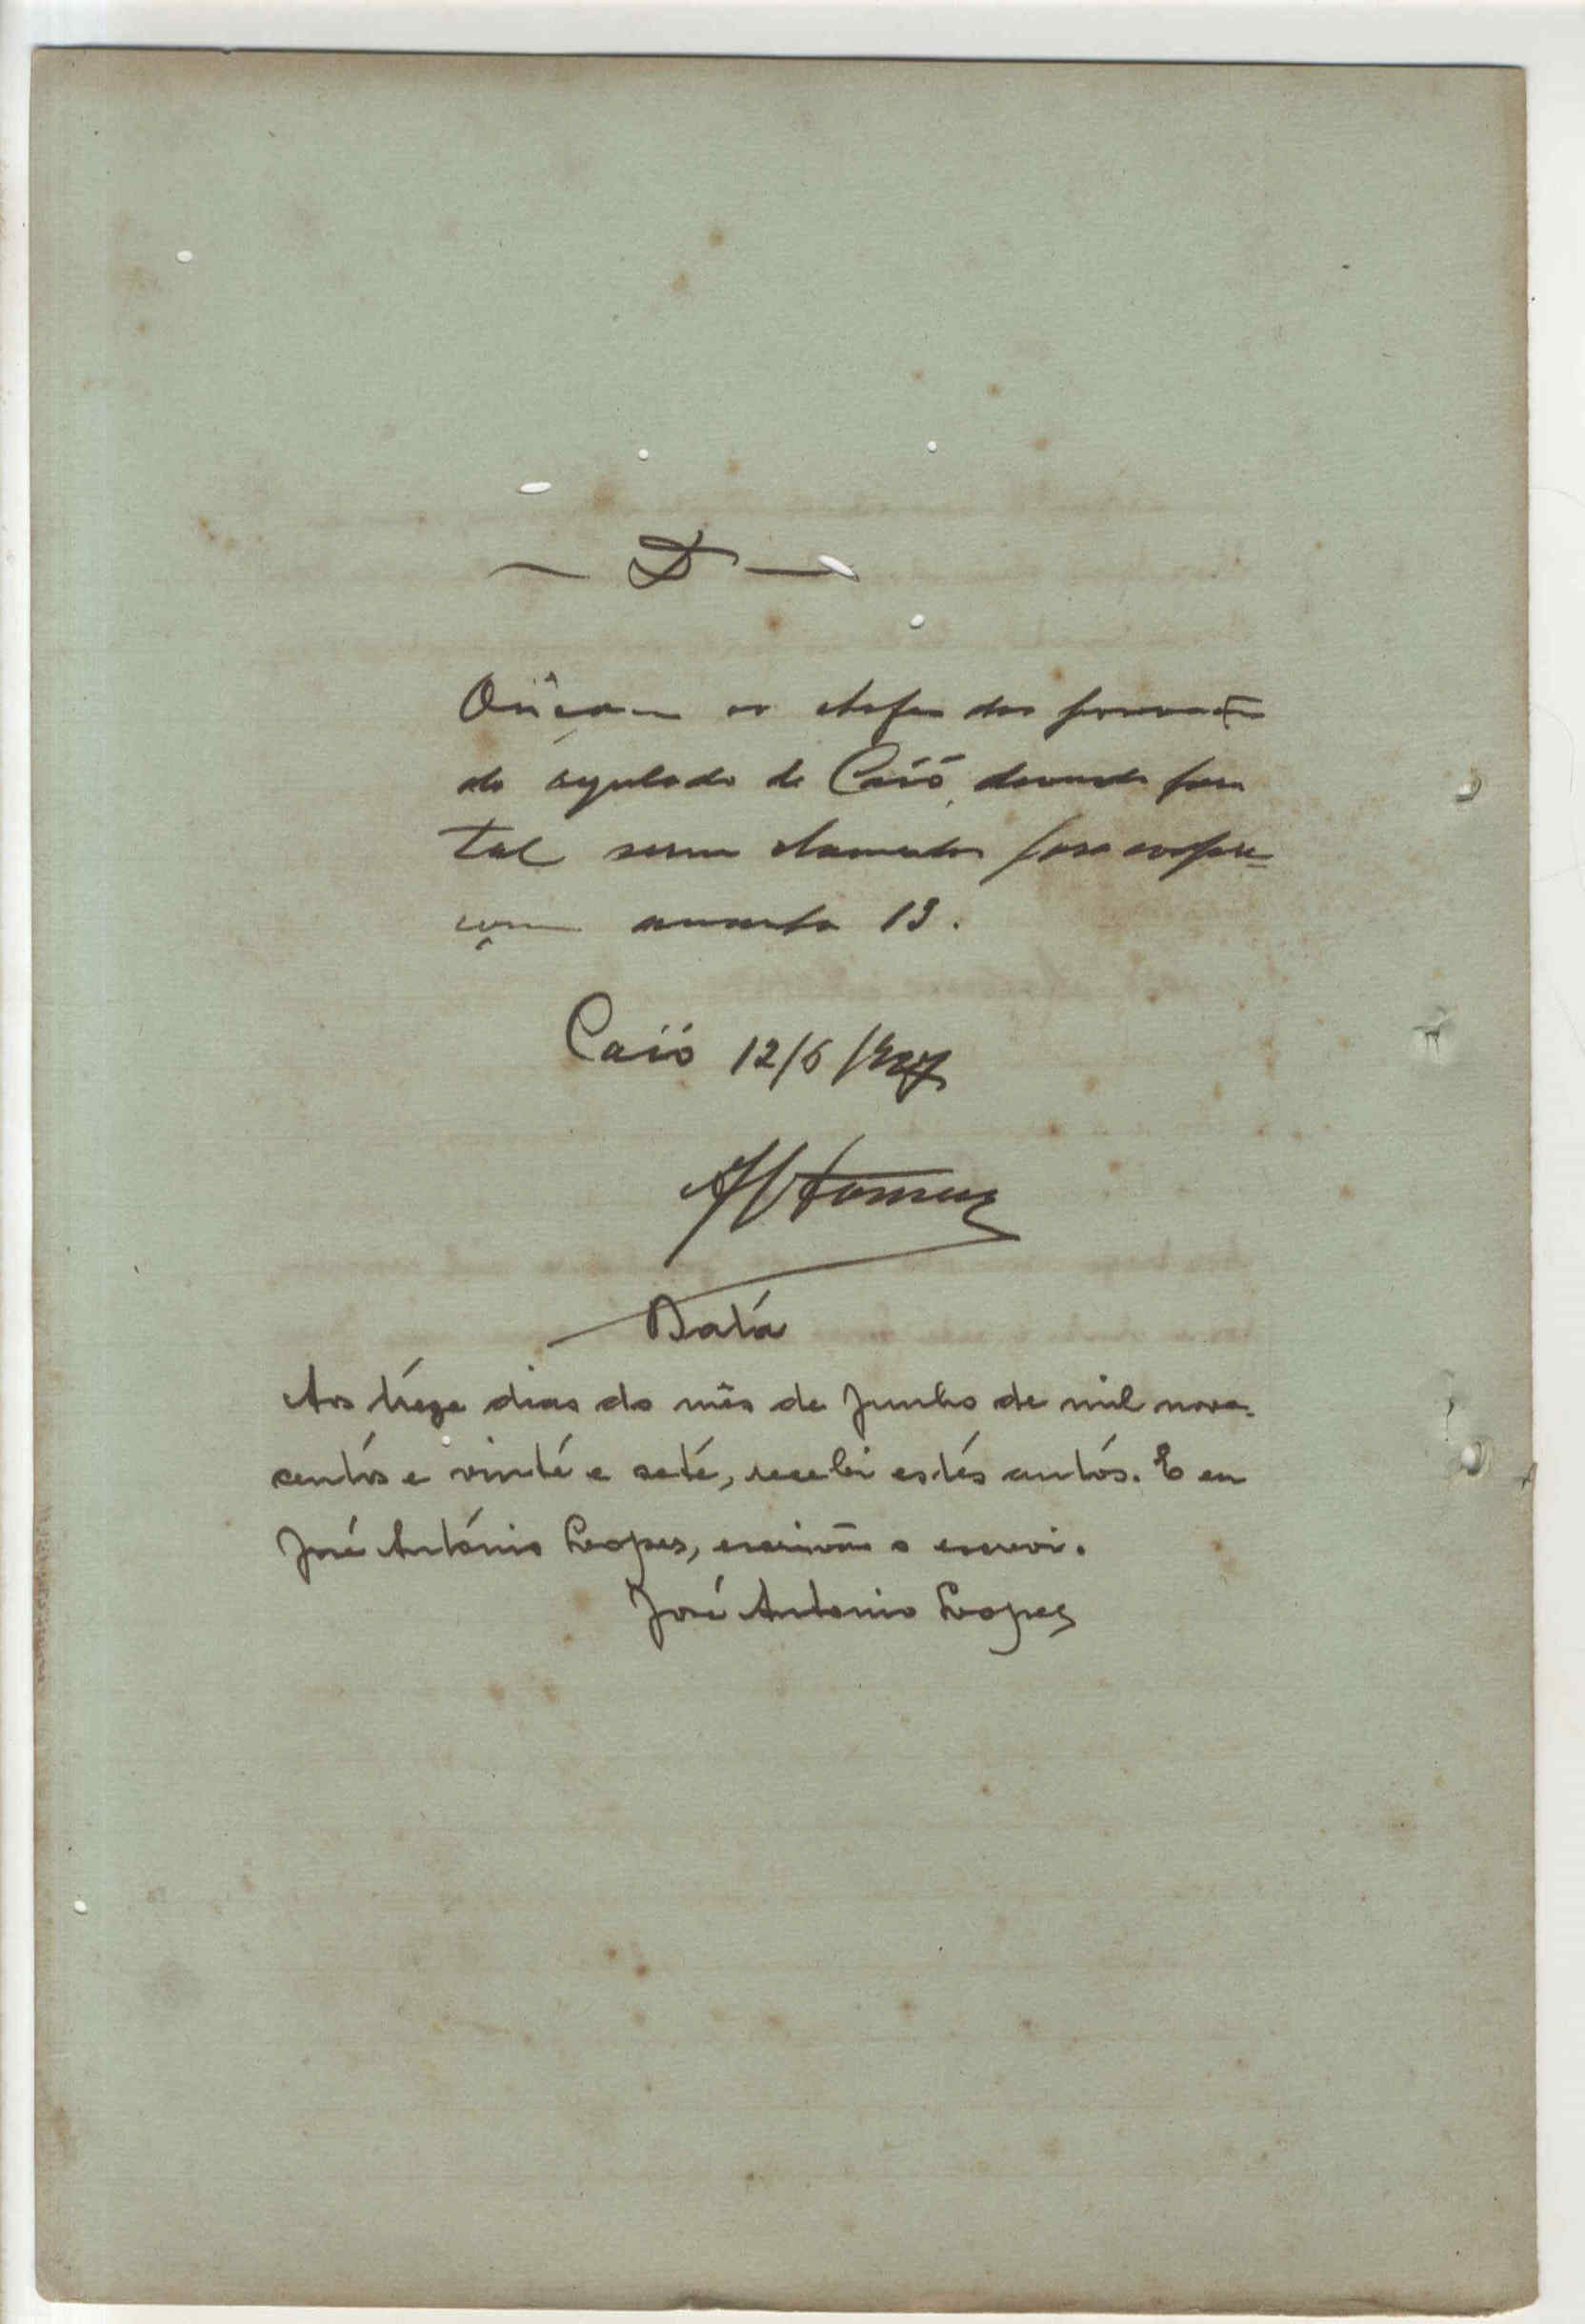 — D —
Oüçam os chefes das povoações
do regulado de Caió, devendo para
tal serem chamados para compare-
cerem amanhã 13.
Caió 12/6/927
Data
Aos treze dias do mês de Junho de mil nove-
centos e vinte e sete, recebi estes autos. E eu
José António Lopes, escrivão o escrevi.
José Antonio Lopes